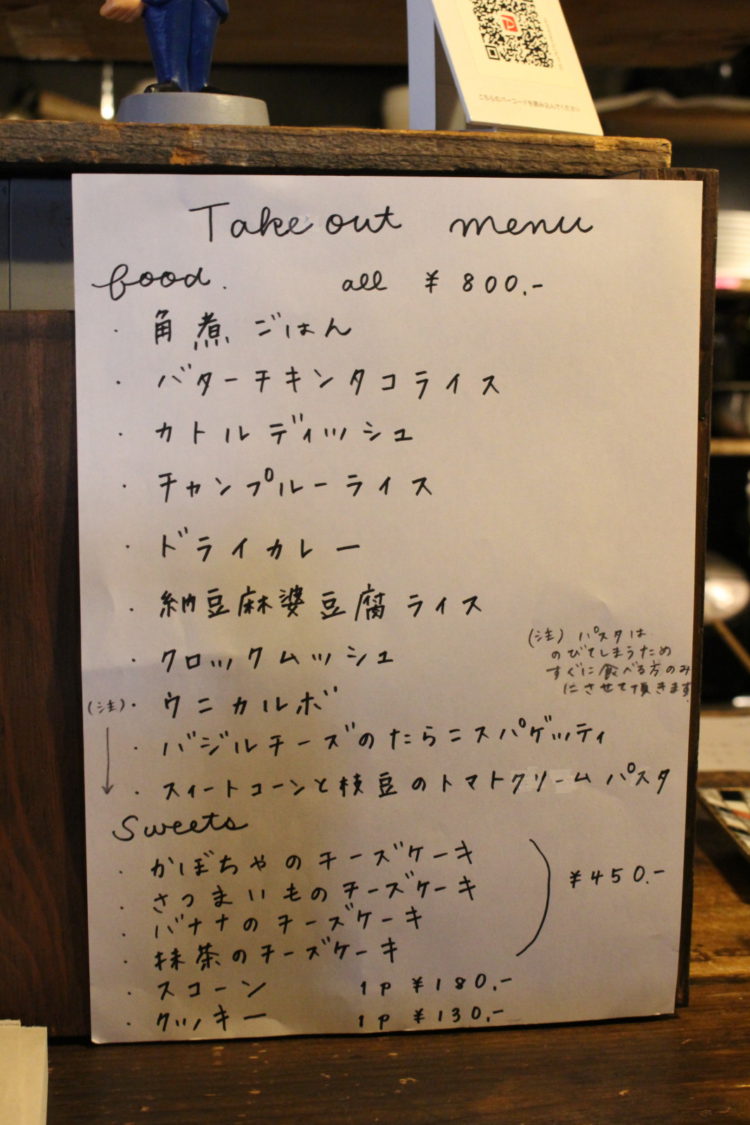 こちらのバーコードを読み込んでください
Take out menu
food. all ¥800.-
・角煮ごはん
・バターチキンタコライス
・カトルディッシュ
・チャンプルーライス
・ドライカレー
・納豆麻婆豆腐ライス
・クロックムッシュ
(注)・ウニカルボ
・バジルチーズのたらこスパゲッティ
・スイートコーンと枝豆のトマトクリームパスタ
(注) パスタは
のびてしまうため
すぐに食べる方のみ
にさせて頂きます
Sweets
・かぼちゃのチーズケーキ
・さつまいものチーズケーキ
・バナナのチーズケーキ
・抹茶のチーズケーキ
¥450.-
・スコーン 1p ¥180.-
・クッキー 1p ¥130.-